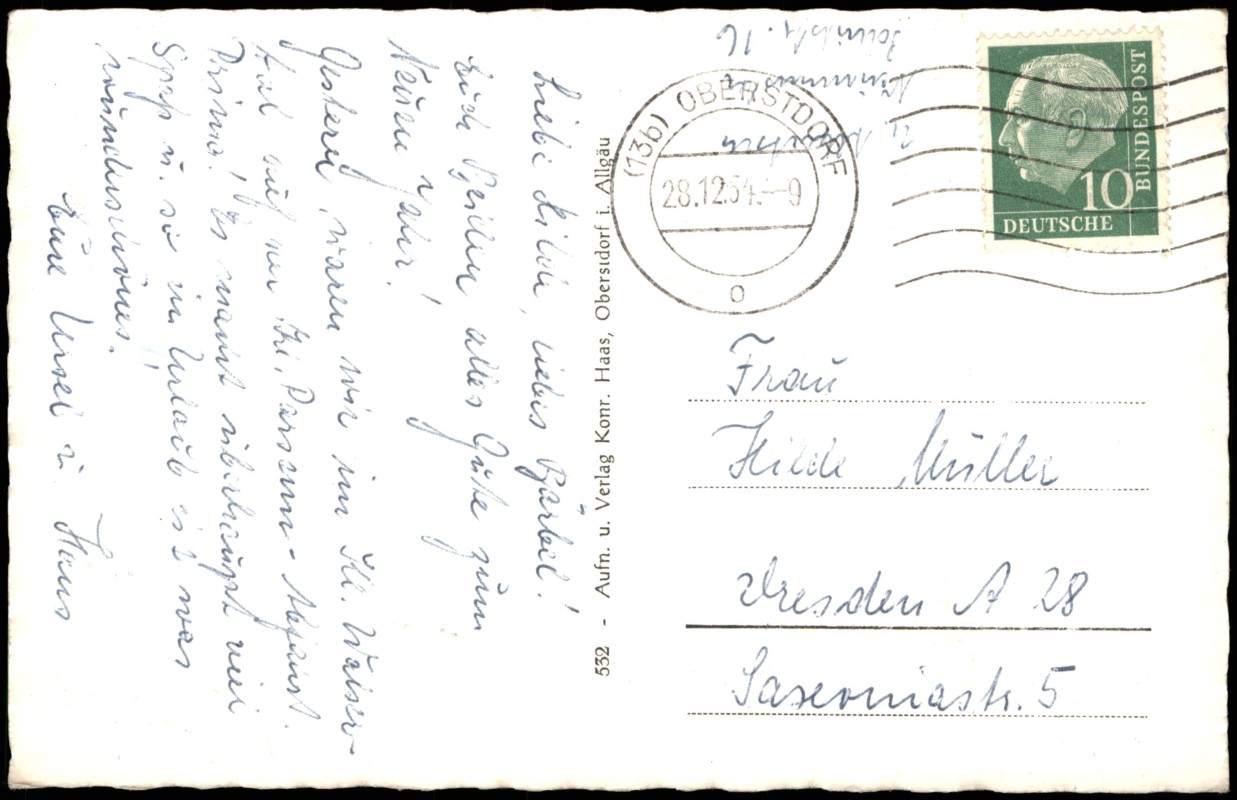 Liebe Hilde, liebes Bärbel!
Euch Beiden alles Gute zum
Neuen Jahr!
Gestern waren wir im Kl. Walser-
tal auf der Ski. Parsenn-Abfahrt.
Prima! Es macht überhaupt viel
Spaß u. so im Urlaub ist was
wunderschönes.
Eure Ursel u. Hans
532 - Aufn. u. Verlag Konr. Haas, Oberstdorf i. Allgäu
(13b) OBERSTDORF
28.12.54.–9
o
DEUTSCHE
BUNDESPOST
10
Frau
Hilde Müller
Dresden A 28
Saxoniastr. 5